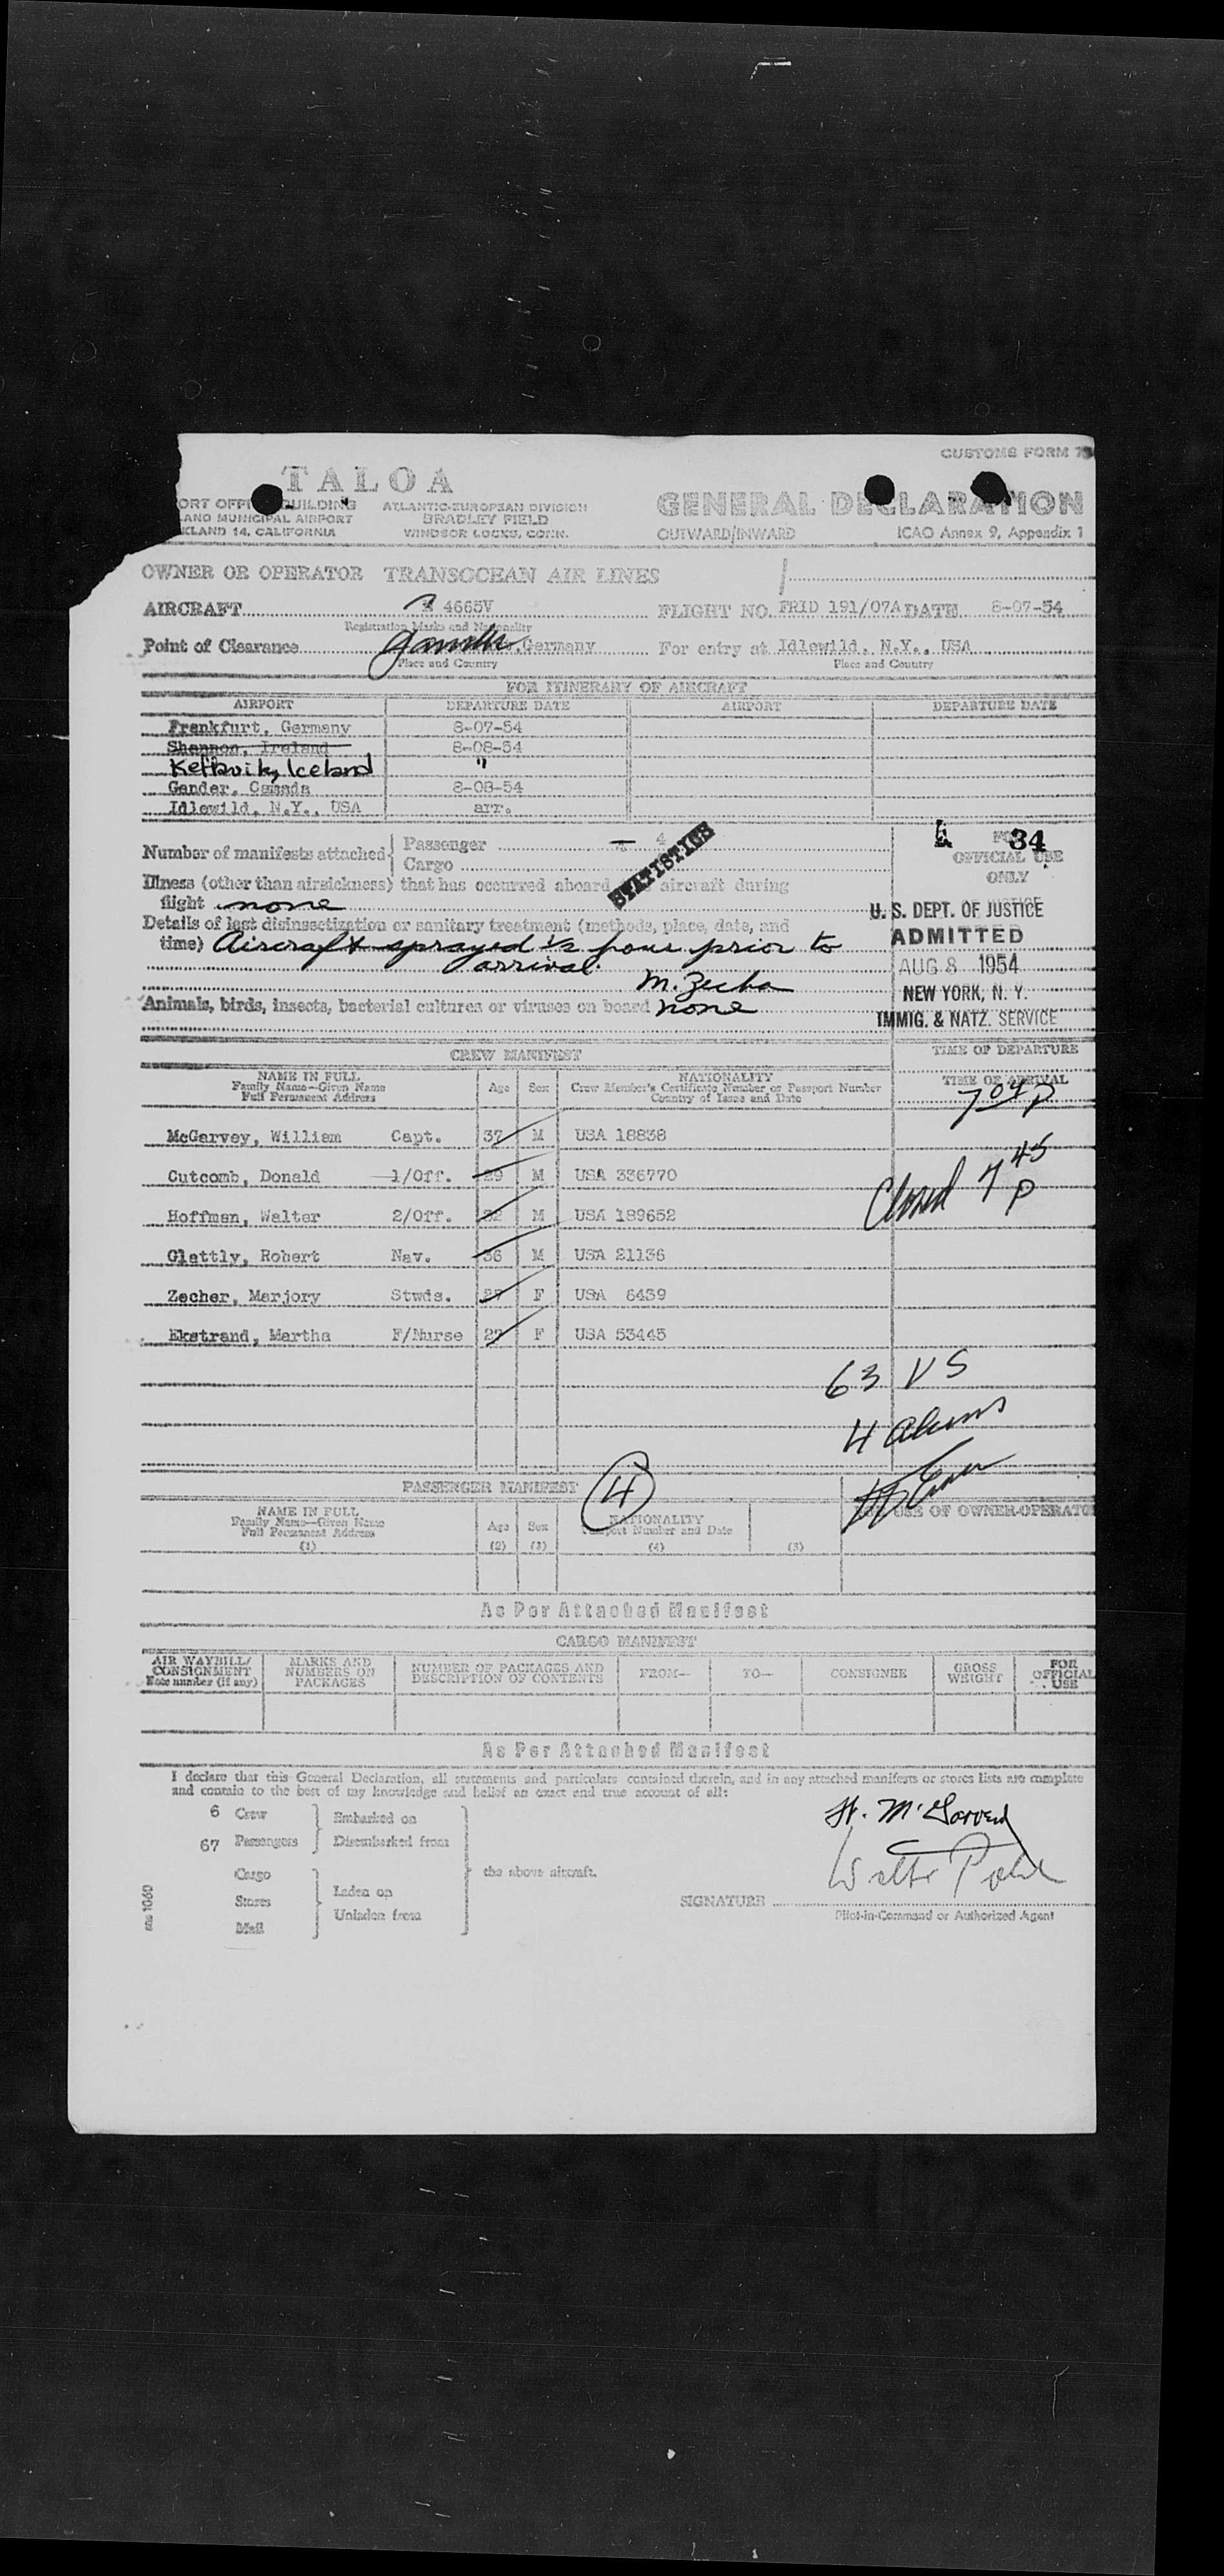 CUSTOMS FORM 75
TALOA
ORT OFFI BUILDING
AND MUNICIPAL AIRPORT
KLAND 14, CALIFORNIA
ATLANTIC-EUROPEAN DIVISION
BRADLEY FIELD
WINDSOR LOCKS, CONN.
GENERAL DECLARATION
OUTWARD/INWARD ICAO Annex 9, Appendix 1
OWNER OR OPERATOR TRANSOCEAN AIR LINES
AIRCRAFT 4665V FLIGHT NO. FRID 191/07A DATE 8-07-54
Registration Marks and Nationality
Point of Clearance Gander, Germany For entry at Idlewild, N.Y., USA
Place and Country Place and Country
FOR ITINERARY OF AIRCRAFT
AIRPORT DEPARTURE DATE AIRPORT DEPARTURE DATE
Frankfurt, Germany 8-07-54
Shannon, Ireland 8-08-54
Keflavik, Iceland "
Gander, Canada 8-08-54
Idlewild, N.Y., USA arr.
Number of manifests attached
Passenger 4
Cargo
STATISTICS
34
OFFICIAL USE
ONLY
Illness (other than airsickness) that has occurred aboard aircraft during
flight none
Details of last disinsectization or sanitary treatment (methods, place, date, and
time) Aircraft sprayed 1/2 hour prior to
arrival.
M. Zecher
Animals, birds, insects, bacterial cultures or viruses on board none
U. S. DEPT. OF JUSTICE
ADMITTED
AUG 8 1954
NEW YORK, N. Y.
IMMIG. & NATZ. SERVICE
CREW MANIFEST
TIME OF DEPARTURE
NAME IN FULL
Family Name—Given Name
Full Permanent Address
Age Sex
NATIONALITY
Crew Member's Certificate Number or Passport Number
Country of Issue and Date
TIME OF ARRIVAL
7 04 P
McGarvey, William Capt. 37 M USA 18838
Cutcomb, Donald 1/Off. 29 M USA 336770
Hoffman, Walter 2/Off. 32 M USA 189652
Glattly, Robert Nav. 36 M USA 21136
Zecher, Marjory Stwds. 27 F USA 6439
Ekstrand, Martha F/Nurse 27 F USA 53445
Closed 7 45 P
63 US
4 aliens
PASSENGER MANIFEST
4
NAME IN FULL
Family Name—Given Name
Full Permanent Address
(1)
Age
(2)
Sex
(3)
NATIONALITY
Passport Number and Date
(4) (5)
USE OF OWNER-OPERATOR
As Per Attached Manifest
CARGO MANIFEST
AIR WAYBILL/
CONSIGNMENT
Note number (if any)
MARKS AND
NUMBERS ON
PACKAGES
NUMBER OF PACKAGES AND
DESCRIPTION OF CONTENTS
FROM— TO— CONSIGNEE
GROSS
WEIGHT
FOR
OFFICIAL
USE
As Per Attached Manifest
I declare that this General Declaration, all statements and particulars contained therein, and in any attached manifests or stores lists are complete
and contain to the best of my knowledge and belief an exact and true account of all:
6 Crew
67 Passengers
Embarked on
Disembarked from
Cargo
Stores
Mail
Laden on
Unladen from
the above aircraft.
W. McGarvey
SIGNATURE
Pilot-in-Command or Authorized Agent